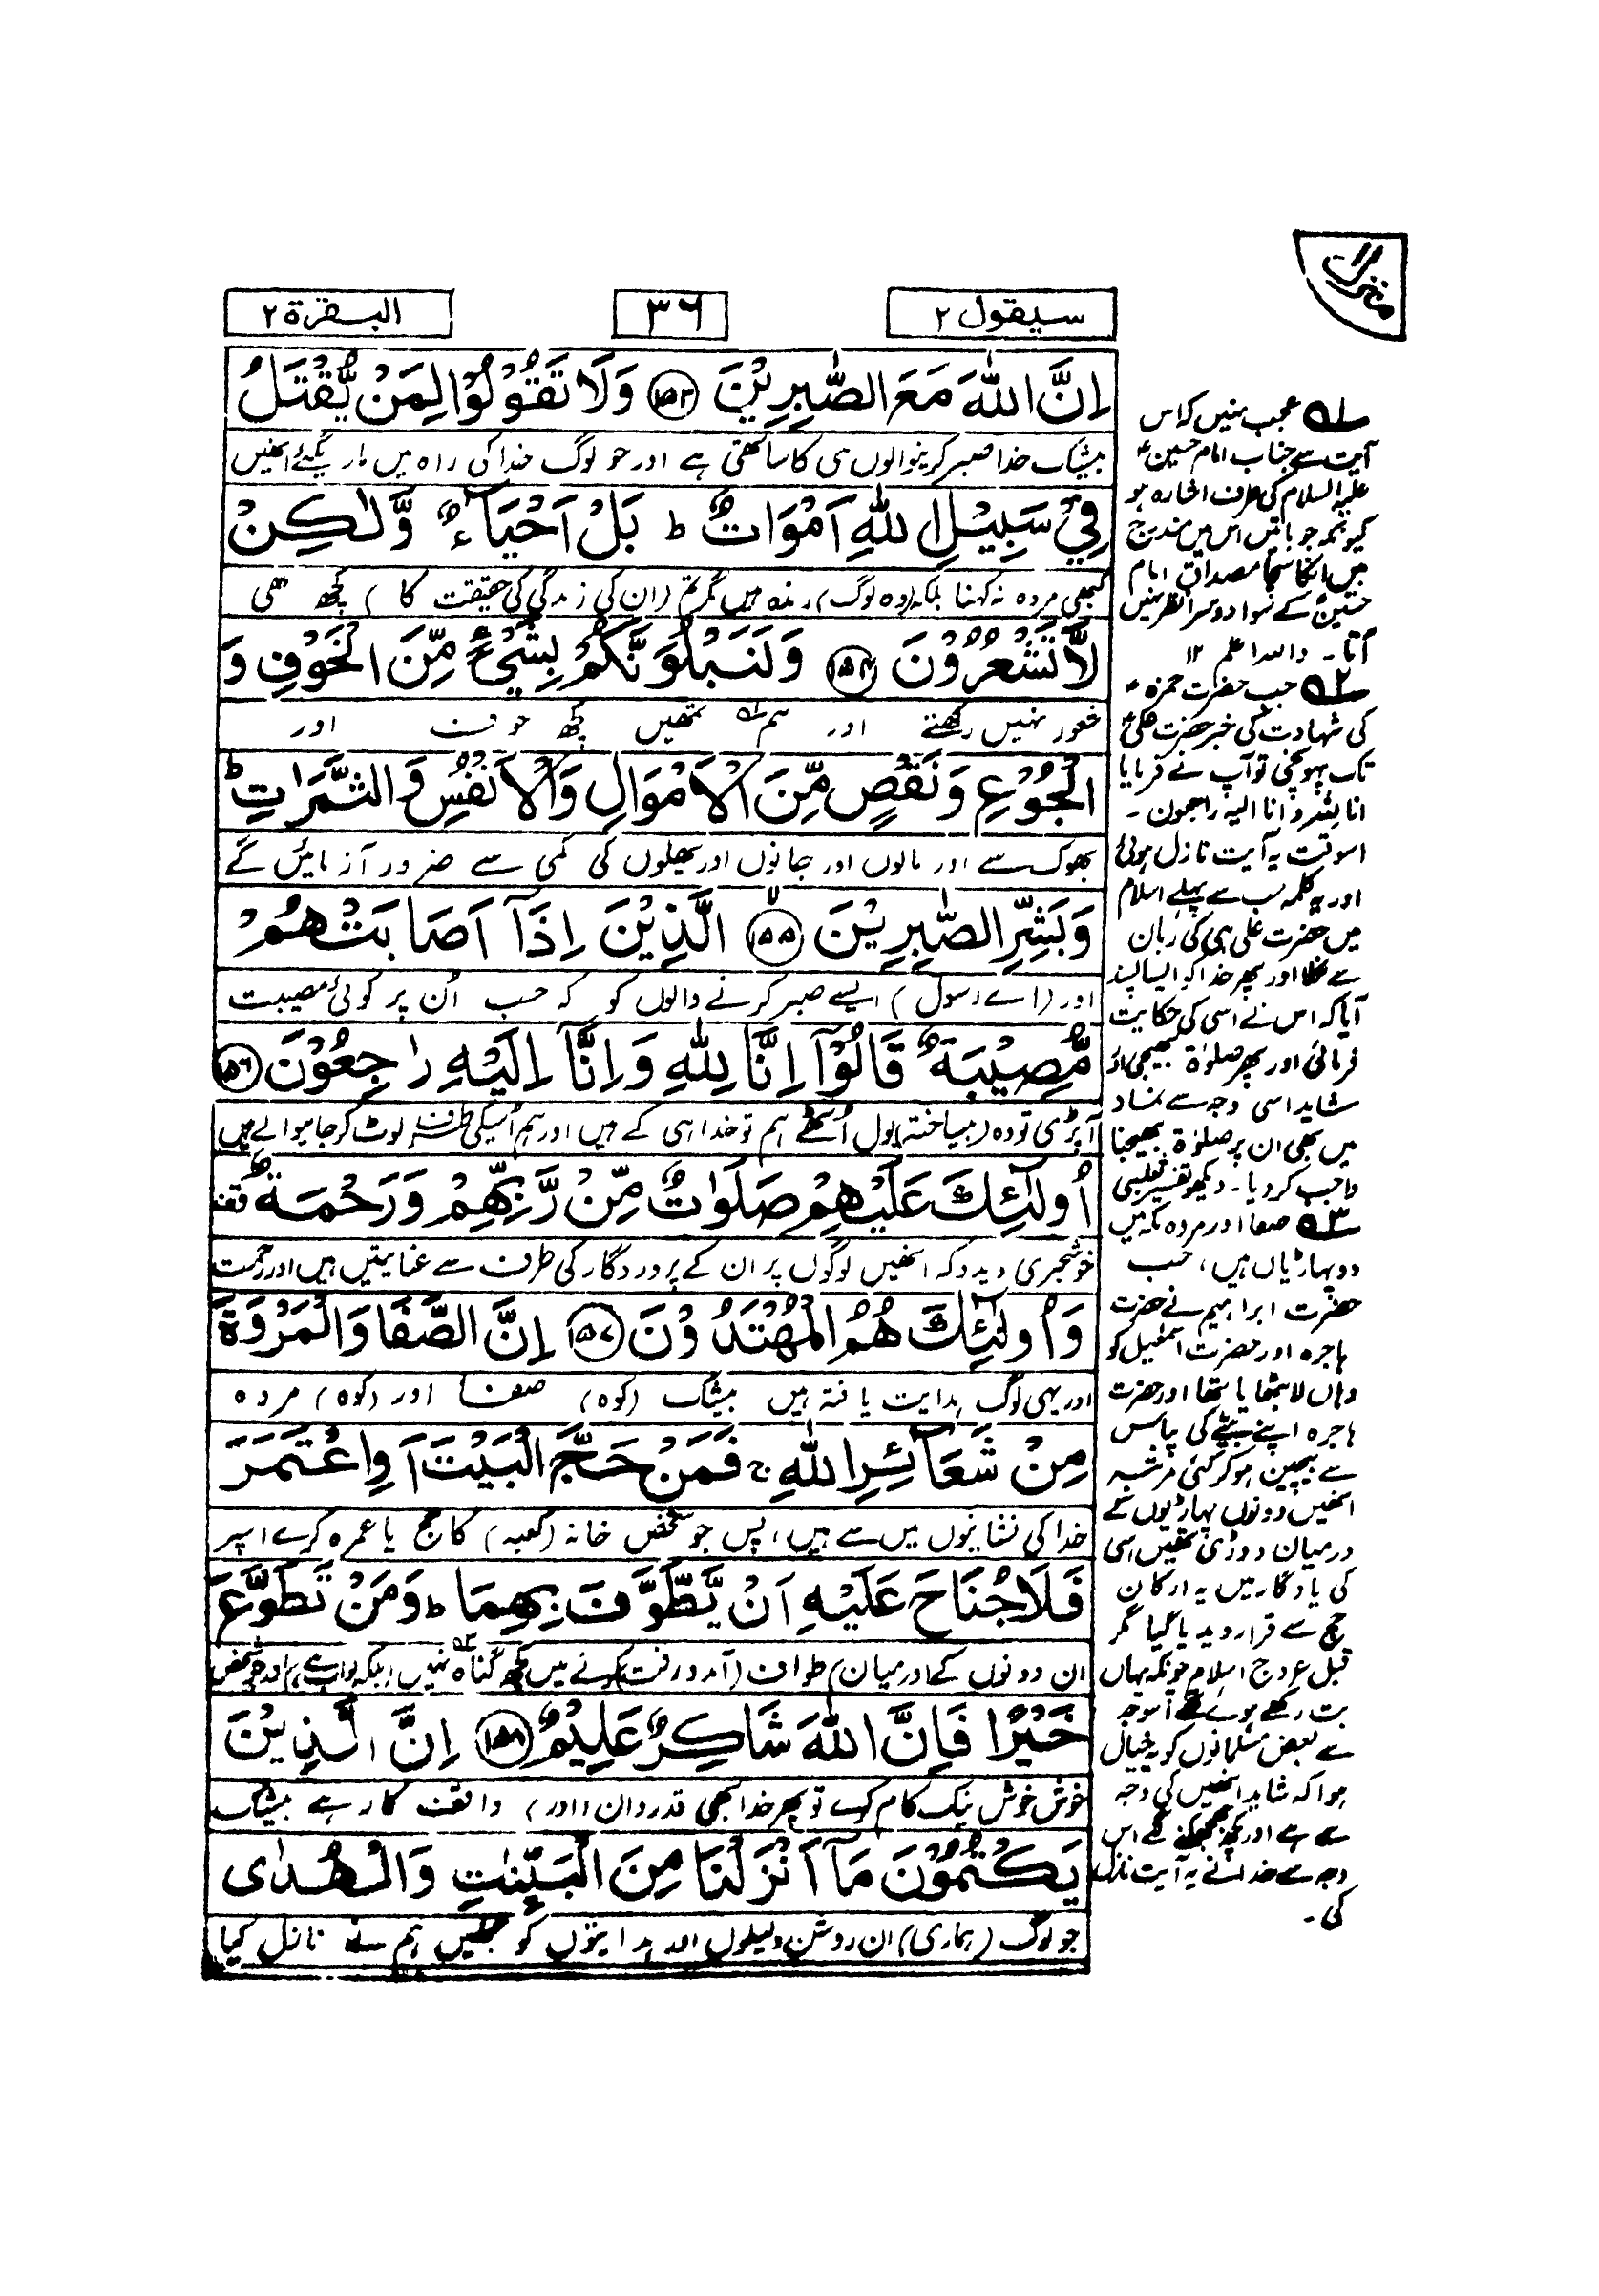 منزل
سيقول ٢
٣٦
البقرة ٢
اِنَّ اللّٰهَ مَعَ الصّٰبِرِيْنَ ﴿١٥٣﴾ وَلَا تَقُوْلُوْا لِمَنْ يُّقْتَلُ
بیشک خدا صبر کرنیوالوں ہی کا ساتھی ہے اور جو لوگ خدا کی راہ میں مارے گئے انھیں
فِيْ سَبِيْلِ اللّٰهِ اَمْوَاتٌ ؕ بَلْ اَحْيَآءٌ وَّلٰكِنْ
کبھی مردہ نہ کہنا بلکہ (وہ لوگ) زندہ ہیں مگر تم (ان کی زندگی کی حقیقت کا) کچھ بھی
لَّا تَشْعُرُوْنَ ﴿١٥٤﴾ وَلَنَبْلُوَنَّكُمْ بِشَيْءٍ مِّنَ الْخَوْفِ وَ
شعور نہیں رکھتے اور ہم تمھیں کچھ خوف اور
الْجُوْعِ وَنَقْصٍ مِّنَ الْاَمْوَالِ وَالْاَنْفُسِ وَالثَّمَرَاتِ ؕ
بھوک سے اور مالوں اور جانوں اور پھلوں کی کمی سے ضرور آزمائیں گے
وَبَشِّرِ الصّٰبِرِيْنَ ﴿١٥٥﴾ الَّذِيْنَ اِذَآ اَصَابَتْهُمْ
اور (اے رسول) ایسے صبر کرنے والوں کو کہ جب اُن پر کوئی مصیبت
مُّصِيْبَةٌ قَالُوْٓا اِنَّا لِلّٰهِ وَاِنَّآ اِلَيْهِ رٰجِعُوْنَ ﴿١٥٦﴾
آپڑی تو وہ (بیساختہ) بول اُٹھے ہم تو خدا ہی کے ہیں اور ہم اُسیکی طرف لوٹ کر جانیوالے ہیں
اُولٰٓئِكَ عَلَيْهِمْ صَلَوٰتٌ مِّنْ رَّبِّهِمْ وَرَحْمَةٌ قف
خوشخبری دیدو کہ انھیں لوگوں پر ان کے پروردگار کی طرف سے عنایتیں ہیں اور رحمت
وَاُولٰٓئِكَ هُمُ الْمُهْتَدُوْنَ ﴿١٥٧﴾ اِنَّ الصَّفَا وَالْمَرْوَةَ
اور یہی لوگ ہدایت یافتہ ہیں بیشک (کوہ) صفا اور (کوہ) مروہ
مِنْ شَعَآئِرِ اللّٰهِ ۚ فَمَنْ حَجَّ الْبَيْتَ اَوِاعْتَمَرَ
خدا کی نشانیوں میں سے ہیں، پس جو شخص خانہ (کعبہ) کا حج یا عمرہ کرے اسپر
فَلَا جُنَاحَ عَلَيْهِ اَنْ يَّطَّوَّفَ بِهِمَا ؕ وَمَنْ تَطَوَّعَ
ان دونوں کے (درمیان) طواف (آمدورفت) کرنے میں کچھ گناہ نہیں (بلکہ ثواب ہے) اور جو شخص
خَيْرًا فَاِنَّ اللّٰهَ شَاكِرٌ عَلِيْمٌ ﴿١٥٨﴾ اِنَّ الَّذِيْنَ
خوش خوش نیک کام کرے تو پھر خدا بھی قدردان (اور) واقف کار ہے بیشک
يَكْتُمُوْنَ مَآ اَنْزَلْنَا مِنَ الْبَيِّنٰتِ وَالْهُدٰى
جو لوگ (ہماری) ان روشن دلیلوں اور ہدایتوں کو جنھیں ہم نے نازل کیا
۱ عجب نہیں کہ اس
آیت سے جناب امام حسین
علیہ السلام کی طرف اشارہ ہو
کیونکہ جو باتیں اس میں مندرج
ہیں انکا سچا مصداق امام
حسین کے سوا دوسرا نظر نہیں
آتا۔ واللہ اعلم ۱۲
۲ جب حضرت حمزہ
کی شہادت کی خبر حضرت علی
تک پہونچی تو آپ نے فرمایا
انا للہ و انا الیہ راجعون۔
اسوقت یہ آیت نازل ہوئی
اور یہ کلمہ سب سے پہلے اسلام
میں حضرت علی ہی کی زبان
سے نکلا اور پھر خدا کو ایسا پسند
آیا کہ اس نے اسی کی حکایت
فرمائی اور پھر صلوٰۃ بھیجی اور
شاید اسی وجہ سے نماز
میں بھی ان پر صلوٰۃ بھیجنا
واجب کردیا۔ دیکھو تفسیر ثعلبی
۳ صفا اور مروہ مکہ میں
دو پہاڑیاں ہیں، جب
حضرت ابراہیم نے حضرت
ہاجرہ اور حضرت اسمٰعیل کو
وہاں لا بٹھایا تھا اور حضرت
ہاجرہ اپنے بیٹے کی پیاس
سے بیچین ہوکر کئی مرتبہ
انھیں دونوں پہاڑیوں کے
درمیان دوڑی تھیں اسی
کی یادگار میں یہ ارکان
حج سے قرار دیدیا گیا مگر
قبل عروج اسلام چونکہ یہاں
بت رکھے ہوئے تھے اسوجہ
سے بعض مسلمانوں کو یہ خیال
ہوا کہ شاید انھیں کی وجہ
سے ہے اور کچھ اس
وجہ سے خدا نے یہ آیت نازل
کی۔